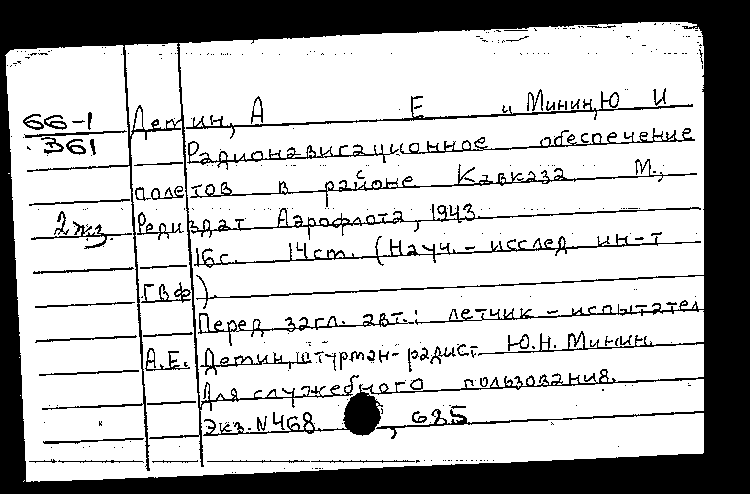 66-1 Детин, А Е и Минин, Ю И
361 Радионавигационное обеспечение
полетов в районе Кавказа М.,
2жз. Редиздат Аэрофлота, 1943.
16с. 14cm. (Науч. - исслед. ин-т
ГВФ).
Перед загл. авт.: летчик - испытател
А.Е. Детин, штурман-радист Ю.Н. Минин.
Для служебного пользования.
Экз. N468. , 685